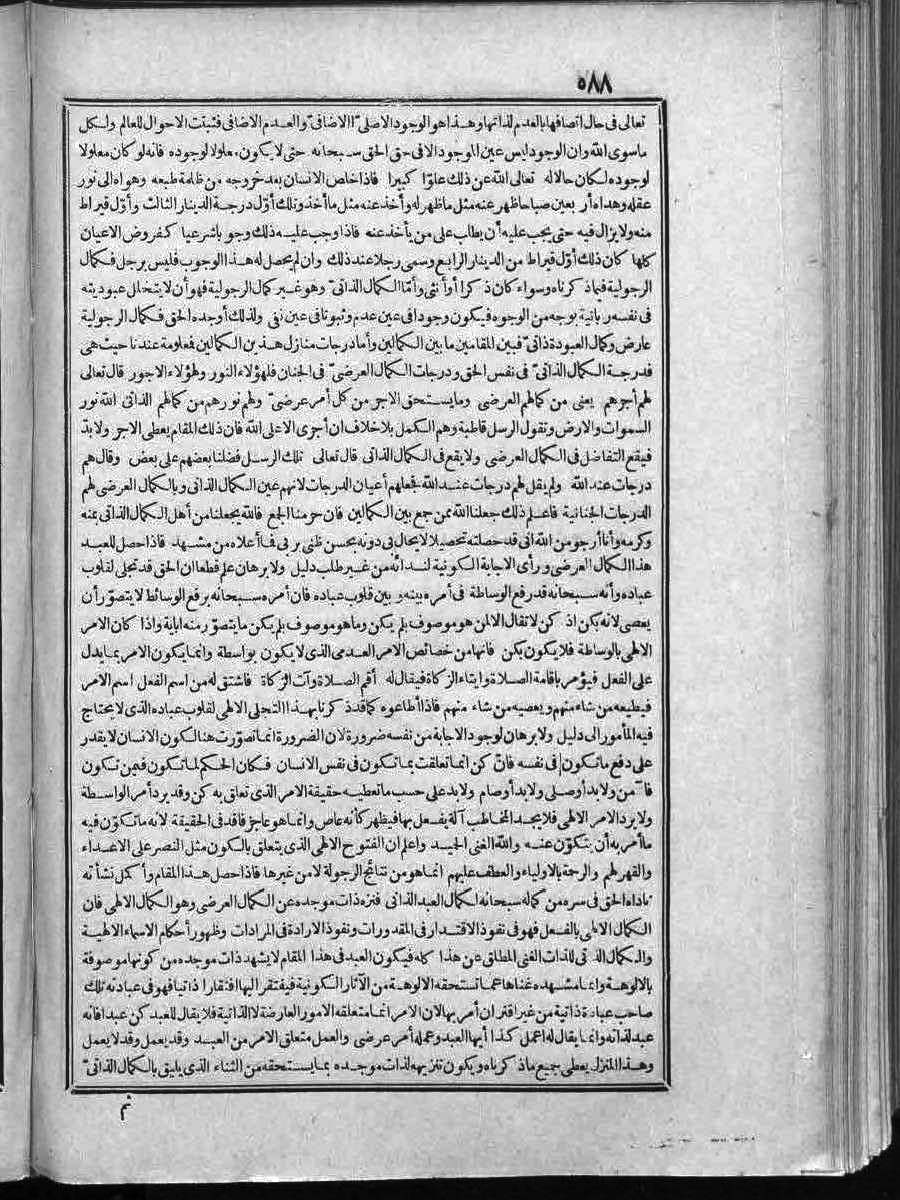 ٥٨٨
تعالى فى حال اتصافها بالعدم لذاتها وهذا هو الوجود الاصلى لا الاضافى والعدم الاضافى فثبتت الاحوال للعالم ولكل
ماسوى الله وان الوجود ليس عين الموجود الا فى حق الحق سبحانه حتى لا يكون معلولا لوجوده فانه لو كان معلولا
لوجوده لكان حالا له تعالى الله عن ذلك علوّا كبيرا فاذا خلص الانسان بعد خروجه من ظلمة طبعه وهواه الى نور
عقله وهداه أربعين صباحا ظهر عنه مثل ما ظهر له وأخذ عنه مثل ما أخذ وتلك أوّل درجة الدينار الثالث وأوّل قيراط
منه ولا يزال فيه حتى يجب عليه أن يطلب على من يأخذ عنه فاذا وجب عليه ذلك وجوبا شرعيا كفروض الاعيان
كلها كان ذلك أوّل قيراط من الدينار الرابع وسمى رجلا عند ذلك وان لم يحصل له هذا الوجوب فليس برجل فكمال
الرجولية فيما ذكرناه وسواء كان ذكرا أو أنثى وأمّا الكمال الذاتىّ وهو غير كمال الرجولية فهو أن لا يتخلل عبوديته
فى نفسه ربانية بوجه من الوجوه فيكون وجودا فى عين عدم وثبوتا فى عين نفى ولذلك أوجده الحق فكمال الرجولية
عارض وكمال العبودة ذاتىّ فبين المقامين ما بين الكمالين وأما درجات منازل هذين الكمالين فعلومة عندنا حيث هى
فدرجة الكمال الذاتىّ فى نفس الحق ودرجات الكمال العرضىّ فى الجنان فلهؤلاء النور ولهؤلاء الاجور قال تعالى
لهم أجرهم يعنى من كمالهم العرضى وما يستحق الاجر من كل أمر عرضىّ ولهم نورهم من كمالهم الذاتى الله نور
السموات والارض وتقول الرسل قاطبة وهم الكمل بلا خلاف ان أجرى الا على الله فان ذلك المقام يعطى الاجر ولا بدّ
فيقع التفاضل فى الكمال العرضى ولا يقع فى الكمال الذاتى قال تعالى تلك الرسل فضلنا بعضهم على بعض وقال هم
درجات عند الله ولم يقل لهم درجات عند الله فجعلهم أعيان الدرجات لانهم عين الكمال الذاتى وبالكمال العرضى لهم
الدرجات الجنانية فاعلم ذلك جعلنا الله ممن جمع بين الكمالين فان حرمنا الجمع فالله يجعلنا من أهل الكمال الذاتى بمنه
وكرمه وأنا أرجو من الله انى قد حصلته تحصيلا لا يحال فى دونه بحسن ظنى بربى فما أعلاه من مشهد فاذا حصل للعبد
هذا الكمال العرضى ورأى الاجابة الكونية لندائه من غير طلب دليل ولا برهان علم قطعا ان الحق قد تجلى لقلوب
عباده وأنه سبحانه قد رفع الوساطة فى أمره بينه وبين قلوب عباده فان أمره سبحانه برفع الوسائط لا يتصوّر أن
يعصى لانه بكن اذ كن لا تقال الا لمن هو موصوف بلم يكن وما هو موصوف بلم يكن ما يتصوّر منه اباية واذا كان الامر
الالهى بالوساطة فلا يكون بكن فانها من خصائص الامر العدمى الذى لا يكون بواسطة وانما يكون الامر بما يدل
على الفعل فيؤمر باقامة الصلاة وايتاء الزكاة فيقال له أقم الصلاة وآت الزكاة فاشتق له من اسم الفعل اسم الامر
فيطيعه من شاء منهم ويعصيه من شاء منهم فاذا أطاعوه كما قد ذكرنا بهذا التجلى الالهى لقلوب عباده الذى لا يحتاج
فيه المأمور الى دليل ولا برهان لوجود الاجابة من نفسه ضرورة لان الضرورة انما تصوّرت هنا لكون الانسان لا يقدر
على دفع ما تكون فى نفسه فانّ كن انما تعلقت بما تكون فى نفس الانسان فكان الحكم لما تكون فيمن تكون
فآمن ولا بد أو صلى ولا بد أو صام ولا بد على حسب ما تعطيه حقيقة الامر الذى تعلق به كن وقد يرد أمر الواسطة
ولا يرد الامر الالهى فلا يجد المخاطب آلة يفعل بها فيظهر كأنه عاص وانما هو عاجز فاقد فى الحقيقة لانه ما تكوّن فيه
ما أمر به أن يتكوّن عنه والله الغنى الحميد واعلم ان الفتوح الالهى الذى يتعلق بالكون مثل النصر على الاعداء
والقهر لهم والرحمة بالاولياء والعطف عليهم انما هو من نتائج الرجولة لا من غيرها فاذا حصل هذا المقام وأكمل نشأته
ناداه الحق فى سره من كماله سبحانه لكمال العبد الذاتى فنزه ذات موجده عن الكمال العرضى وهو الكمال الالهى فان
الكمال الالهى بالفعل فهو فى نفوذ الاقتدار فى المقدورات ونفوذ الارادة فى المرادات وظهور أحكام الاسماء الالهية
والكمال الذاتى للذات الغنى المطلق عن هذا كله فيكون العبد فى هذا المقام لا يشهد ذات موجده من كونها موصوفة
بالالوهة وانما مشهده غناها عما تستحقه الالوهة من الآثار الكونية فيفتقر اليها افتقارا ذاتيا فهو فى عبادته تلك
صاحب عبادة ذاتية من غير اقتران أمر بها لان الامر انما متعلقه الامور العارضة لا الذاتية فلا يقال للعبد كن عبدا فانه
عبد لذاته وانما يقال له اعمل كذا أيها العبد وعمله أمر عرضى والعمل متعلق الامر من العبد وقد يعمل وقد لا يعمل
وهذا المنزل يعطى جميع ماذكرناه ويكون تنزيهه لذات موجده بما يستحقه من الثناء الذى يليق بالكمال الذاتىّ
ثم